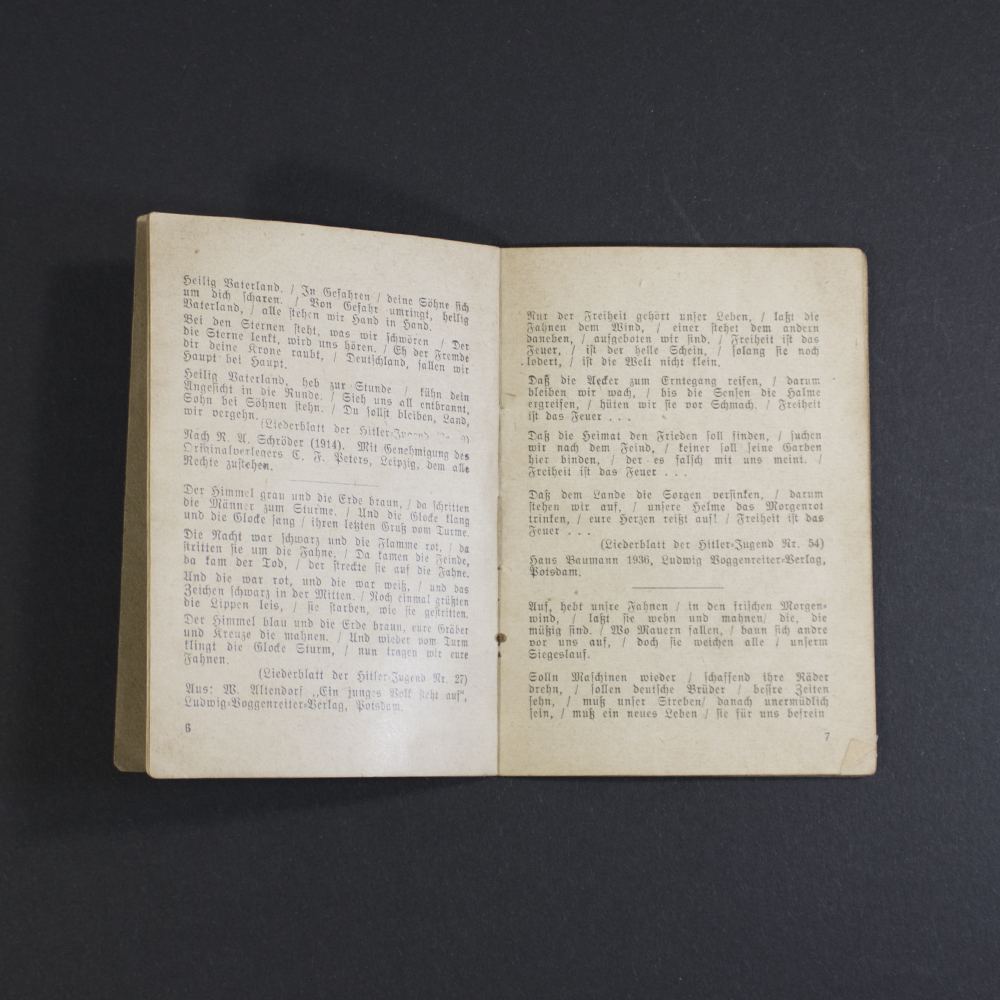 Heilig Vaterland. / In Gefahren / deine Söhne sich
um dich scharen. / Von Gefahr umringt, heilig
Vaterland, / alle stehen wir Hand in Hand.
Bei den Sternen steht, was wir schwören / Der
die Sterne lenkt, wird uns hören. / Eh der Fremde
dir deine Krone raubt, / Deutschland, fallen wir
Haupt bei Haupt.
Heilig Vaterland, heb zur Stunde / kühn dein
Angesicht in die Runde. / Sieh uns all entbrannt,
Sohn bei Söhnen stehn. / Du sollst bleiben, Land,
wir vergehn.
(Liederblatt der Hitler-Jugend
Nach R. A. Schröder (1914). Mit Genehmigung des
Originalverlegers C. F. Peters, Leipzig, dem alle
Rechte zustehen.
Der Himmel grau und die Erde braun, / da schritten
die Männer zum Sturme. / Und die Glocke klang
und die Glocke sang / ihren letzten Gruß vom Turme.
Die Nacht war schwarz und die Flamme rot, / da
stritten sie um die Fahne. / Da kamen die Feinde,
da kam der Tod, / der streckte sie auf die Fahne.
Und die war rot, und die war weiß, / und das
Zeichen schwarz in der Mitten. / Noch einmal grüßten
die Lippen leis, / sie starben, wie sie gestritten.
Der Himmel blau und die Erde braun, eure Gräber
und Kreuze die mahnen. / Und wieder vom Turm
klingt die Glocke Sturm, / nun tragen wir eure
Fahnen.
(Liederblatt der Hitler-Jugend Nr. 27)
Aus: W. Altendorf „Ein junges Volk steht auf“,
Ludwig-Voggenreiter-Verlag, Potsdam.
6
Nur der Freiheit gehört unser Leben, / laßt die
Fahnen dem Wind, / einer stehet dem andern
daneben, / aufgeboten wir sind. / Freiheit ist das
Feuer, / ist der helle Schein, / solang sie noch
lodert, / ist die Welt nicht klein.
Daß die Aecker zum Erntegang reifen, / darum
bleiben wir wach, / bis die Sensen die Halme
ergreifen, / hüten wir sie vor Schmach. / Freiheit
ist das Feuer . . .
Daß die Heimat den Frieden soll finden, / suchen
wir nach dem Feind, / keiner soll seine Garben
hier binden, / der es falsch mit uns meint. /
Freiheit ist das Feuer . . .
Daß dem Lande die Sorgen versinken, / darum
stehen wir auf, / unsere Helme das Morgenrot
trinken, / eure Herzen reißt auf! / Freiheit ist das
Feuer . . .
(Liederblatt der Hitler-Jugend Nr. 54)
Hans Baumann 1936, Ludwig Voggenreiter-Verlag,
Potsdam.
Auf, hebt unsre Fahnen / in den frischen Morgen-
wind, / laßt sie wehn und mahnen/ die, die
müßig sind. / Wo Mauern fallen, / baun sich andre
vor uns auf, / doch sie weichen alle / unserm
Siegeslauf.
Solln Maschinen wieder / schaffend ihre Räder
drehn, / sollen deutsche Brüder / beßre Zeiten
sehn, / muß unser Streben/ danach unermüdlich
sein, / muß ein neues Leben / sie für uns befrein
7